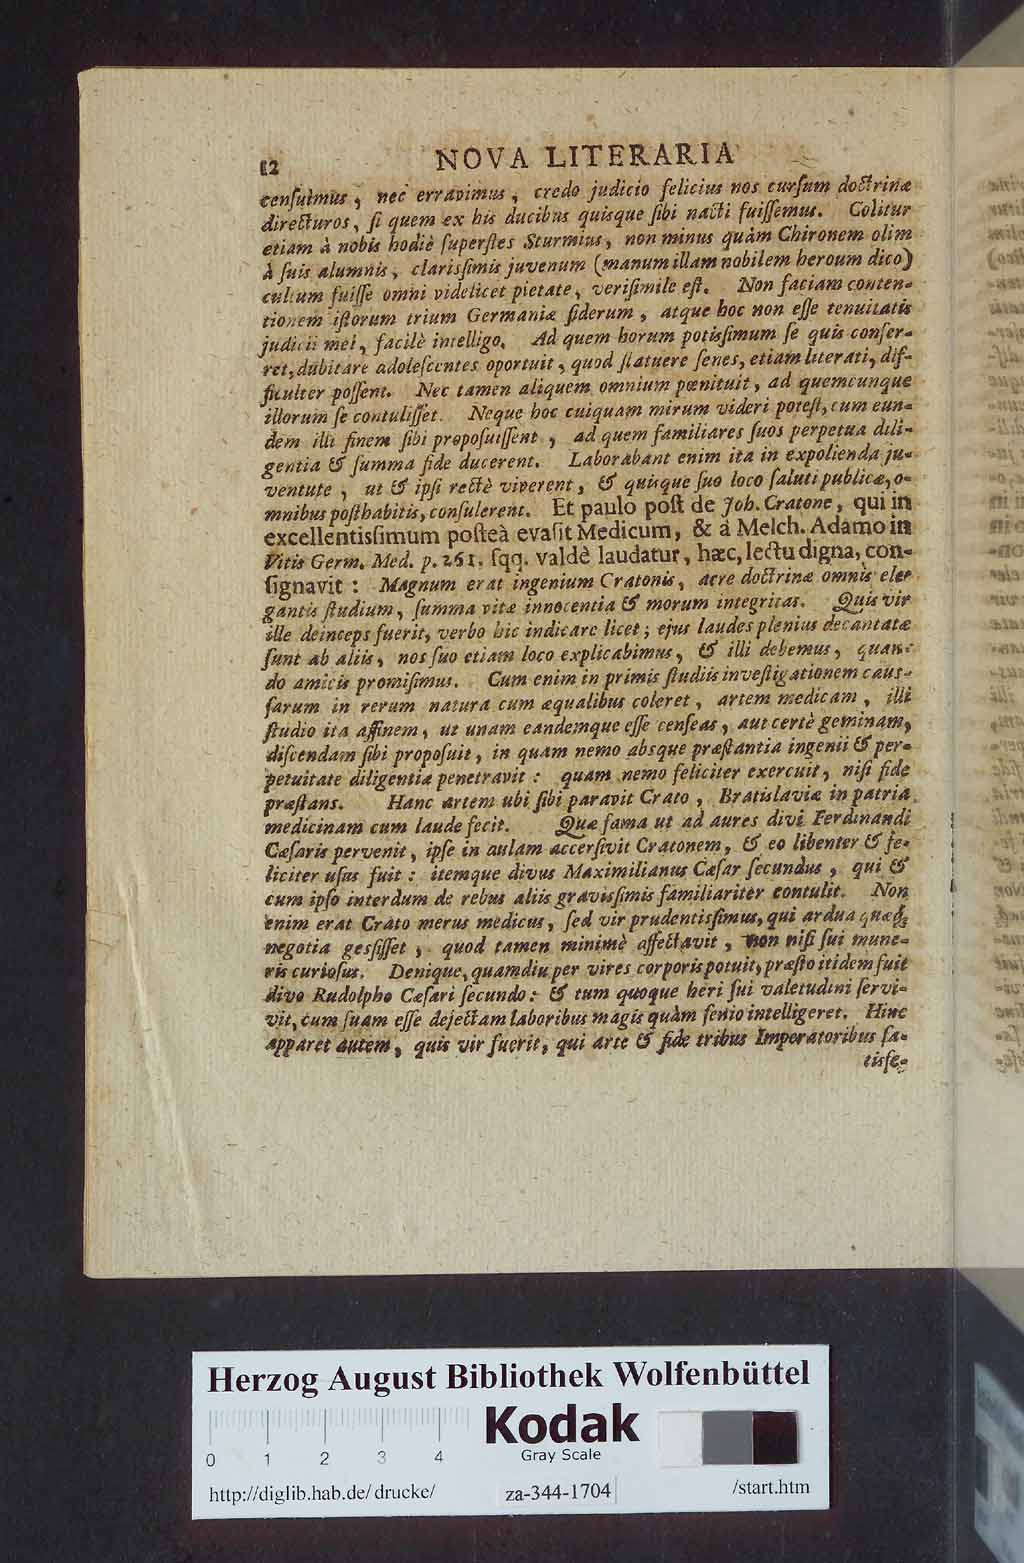 12 NOVA LITERARIA
censuimus, nec erravimus, credo judicio felicius nos cursum doctrinæ
directuros, si quem ex his ducibus quisque sibi nacti fuissemus. Colitur
etiam à nobis hodiè superstes Sturmius, non minus quàm Chironem olim
à suis alumnis, clarissimis juvenum (manum illam nobilem heroum dico)
cultum fuisse omni videlicet pietate, verisimile est. Non faciam conten-
tionem istorum trium Germaniæ siderum, atque hoc non esse tenuitatis
judicii mei, facilè intelligo. Ad quem horum potissimum se quis confer-
ret, dubitare adolescentes oportuit, quod statuere senes, etiam literati, dif-
ficulter possent. Nec tamen aliquem omnium pœnituit, ad quemcunque
illorum se contulisset. Neque hoc cuiquam mirum videri potest, cum eun-
dem illi finem sibi proposuissent, ad quem familiares suos perpetua dili-
gentia & summa fide ducerent. Laborabant enim ita in expolienda ju-
ventute, ut & ipsi rectè viverent, & quisque suo loco saluti publicæ, o-
mnibus posthabitis, consulerent. Et paulo post de Joh. Cratone, qui in
excellentissimum posteà evasit Medicum, & á Melch. Adamo in
Vitis Germ. Med. p. 261. sqq. valdè laudatur, hæc, lectu digna, con-
signavit: Magnum erat ingenium Cratonis, acre doctrinæ omnis ele-
gantis studium, summa vitæ innocentia & morum integritas. Quis vir
ille deinceps fuerit, verbo hic indicare licet; ejus laudes plenius decantatæ
sunt ab aliis, nos suo etiam loco explicabimus, & illi debemus, quan-
do amicis promisimus. Cum enim in primis studiis investigationem caus-
sarum in rerum natura cum æqualibus coleret, artem medicam, illi
studio ita affinem, ut unam eandemque esse censeas, aut certè geminam,
discendam sibi proposuit, in quam nemo absque præstantia ingenii & per-
petuitate diligentiæ penetravit: quam nemo feliciter exercuit, nisi fide
præstans. Hanc artem ubi sibi paravit Crato, Bratislaviæ in patria
medicinam cum laude fecit. Quæ fama ut ad aures divi Ferdinandi
Cæsaris pervenit, ipse in aulam accersivit Cratonem, & eo libenter & fe-
liciter usus fuit: itemque divus Maximilianus Cæsar secundus, qui &
cum ipso interdum de rebus aliis gravissimis familiariter contulit. Non
enim erat Crato merus medicus, sed vir prudentissimus, qui ardua quæq;
negotia gessisset, quod tamen minimè affectavit, non nisi sui mune-
ris curiosus. Denique, quamdiu per vires corporis potuit, præsto itidem fuit
divo Rudolpho Cæsari secundo: & tum quoque heri sui valetudini servi-
vit, cum suam esse dejectam laboribus magis quàm senio intelligeret. Hinc
apparet autem, quis vir fuerit, qui arte & fide tribus Imperatoribus sa-
tisfe-
Herzog August Bibliothek Wolfenbüttel
0 1 2 3 4
Kodak
Gray Scale
http://diglib.hab.de/drucke/ za-344-1704 /start.htm